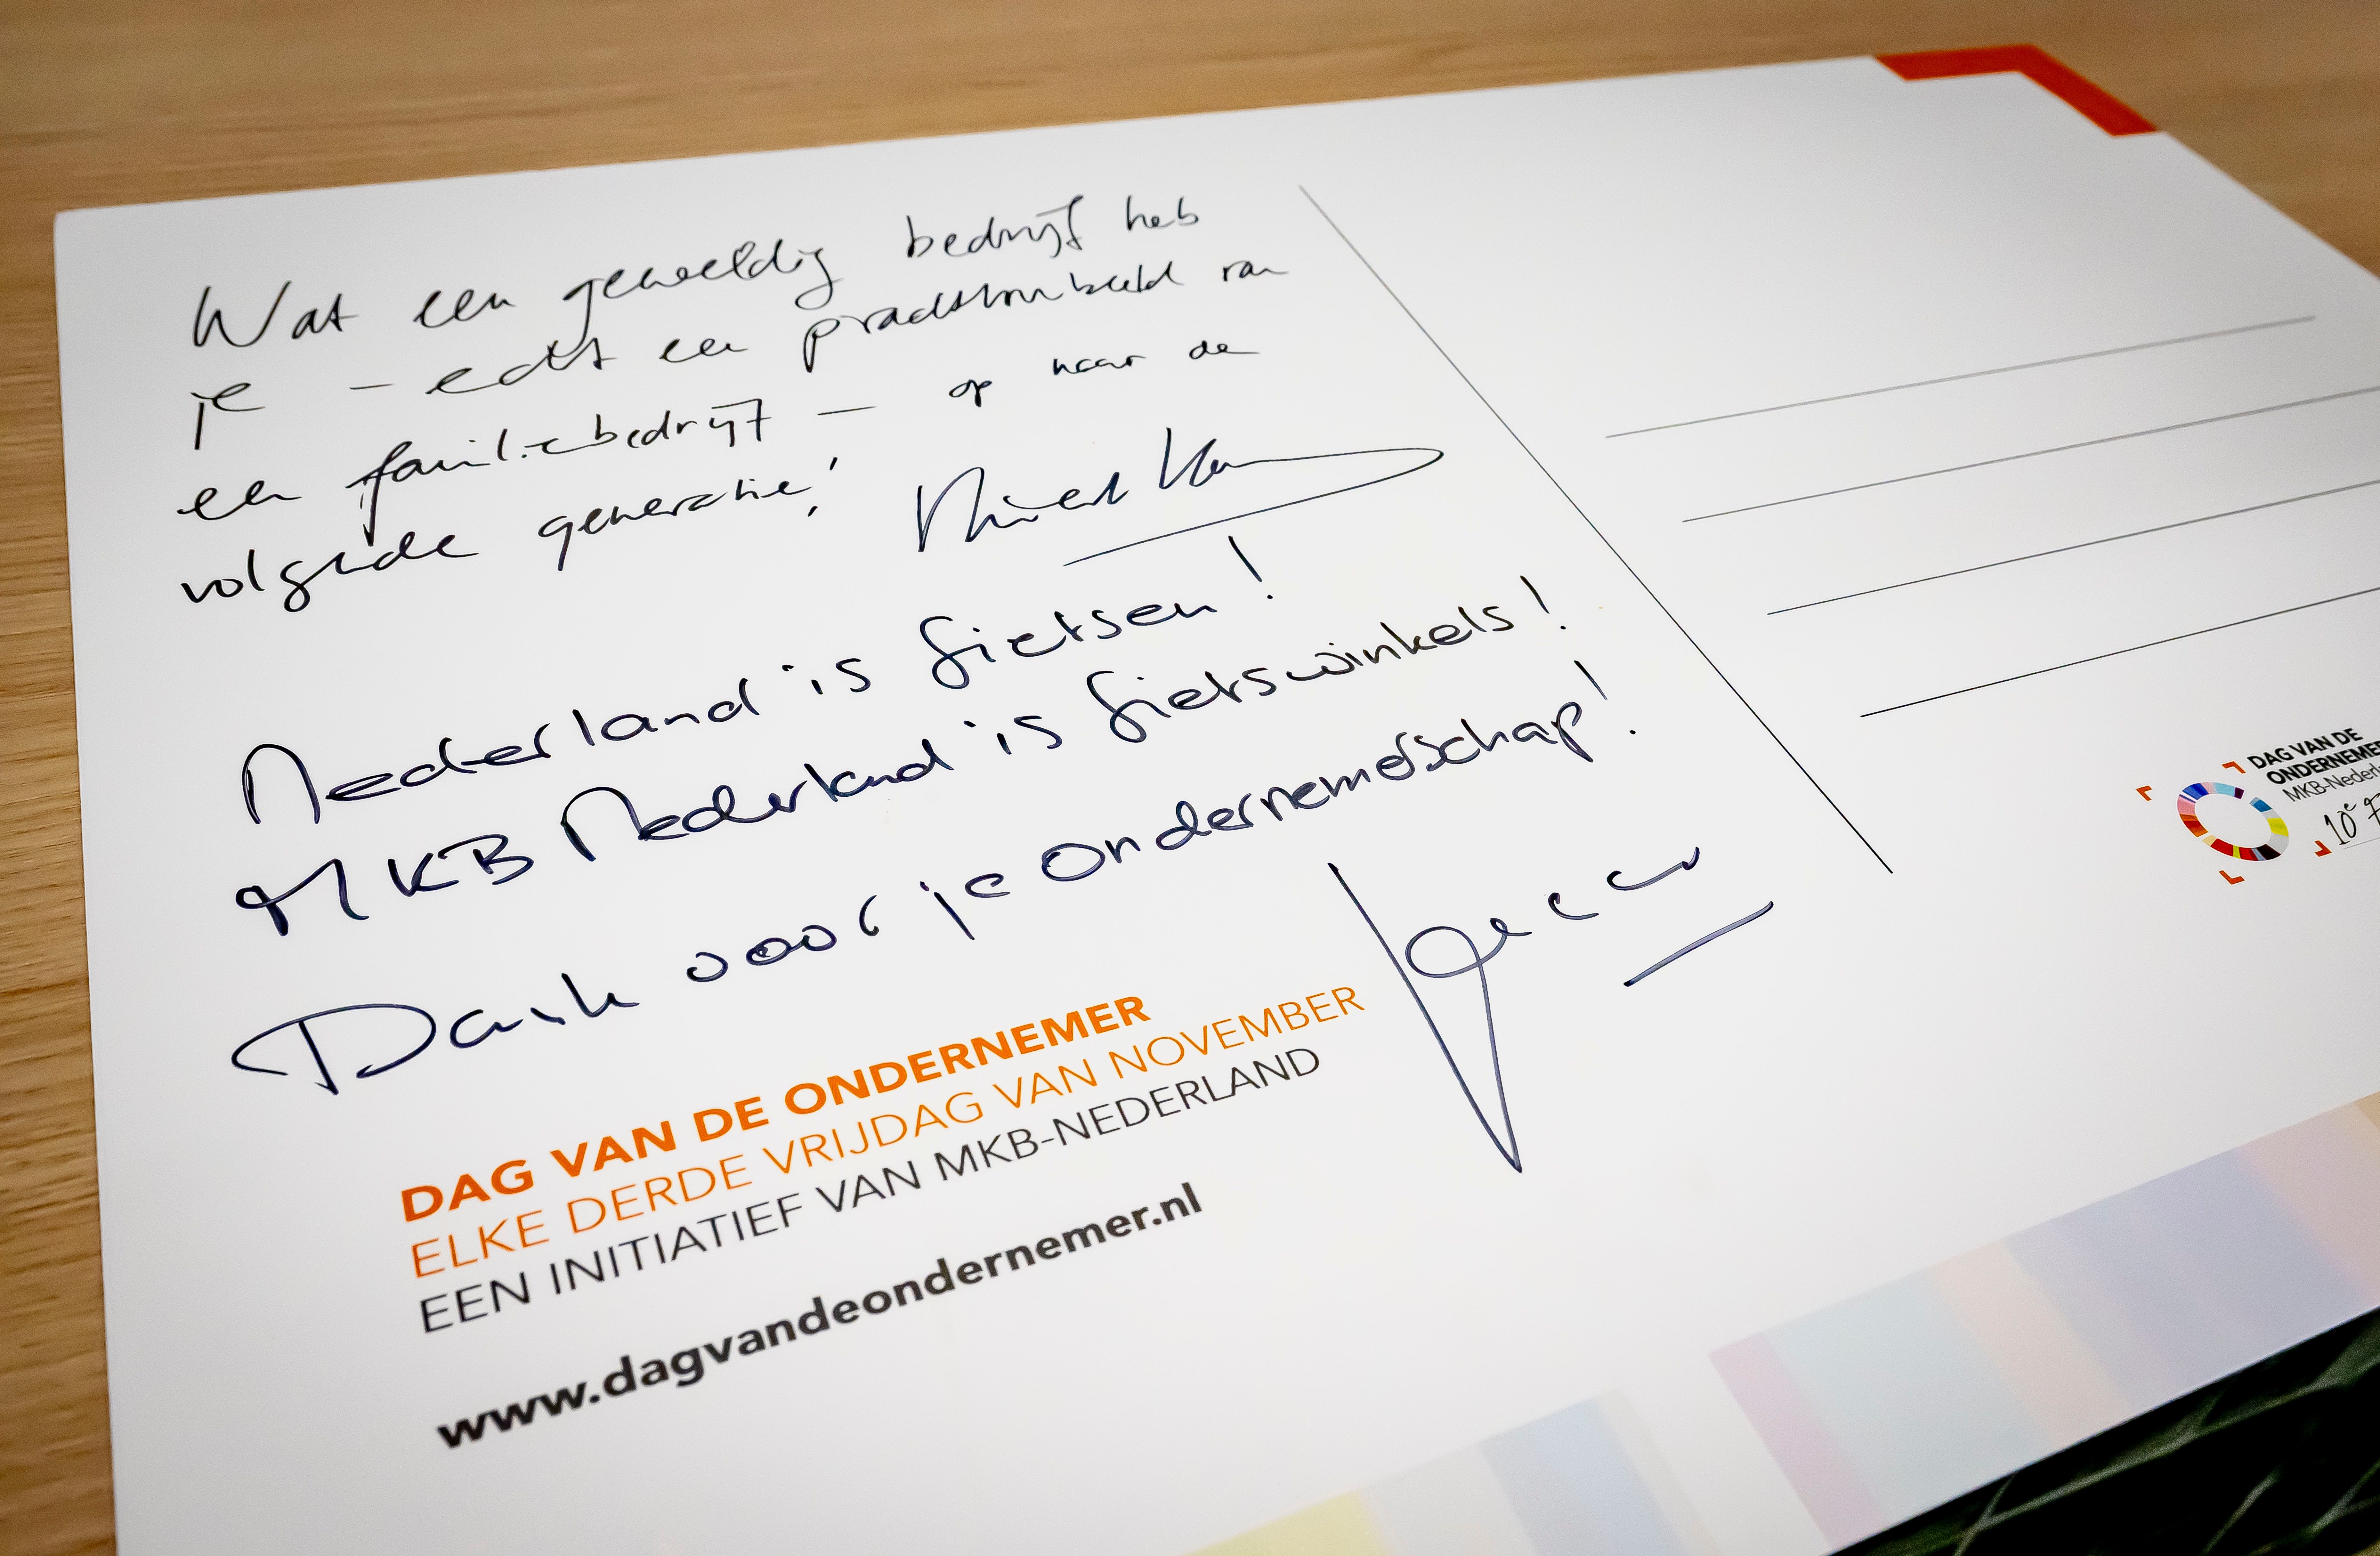 Wat een geweldig bedrijf heb
je – echt een prachtvoorbeeld van
een familiebedrijf – op naar de
volgende generatie!
Nederland is fietsen!
MKB Nederland is fietswinkels!
Dank voor je ondernemerschap!
DAG VAN DE ONDERNEMER
ELKE DERDE VRIJDAG VAN NOVEMBER
EEN INITIATIEF VAN MKB-NEDERLAND
www.dagvandeondernemer.nl
DAG VAN DE
ONDERNEMER
MKB-Nederla
10e